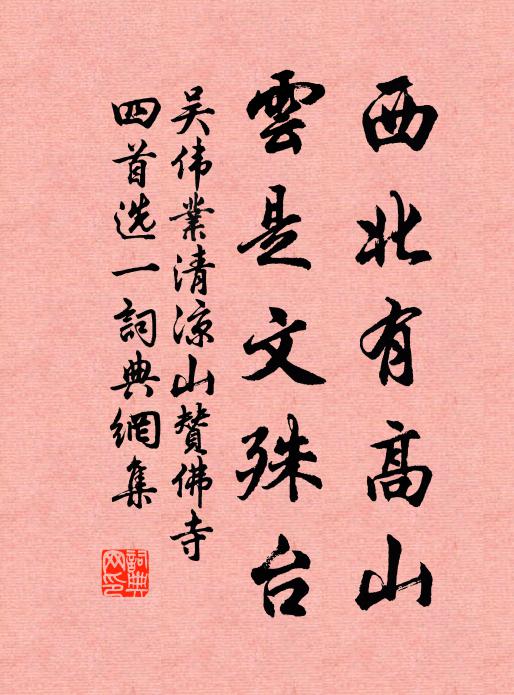 西北有高山
雲是文殊台
吴伟業清凉山贊佛寺
四首选一詞典網集
詞典網印